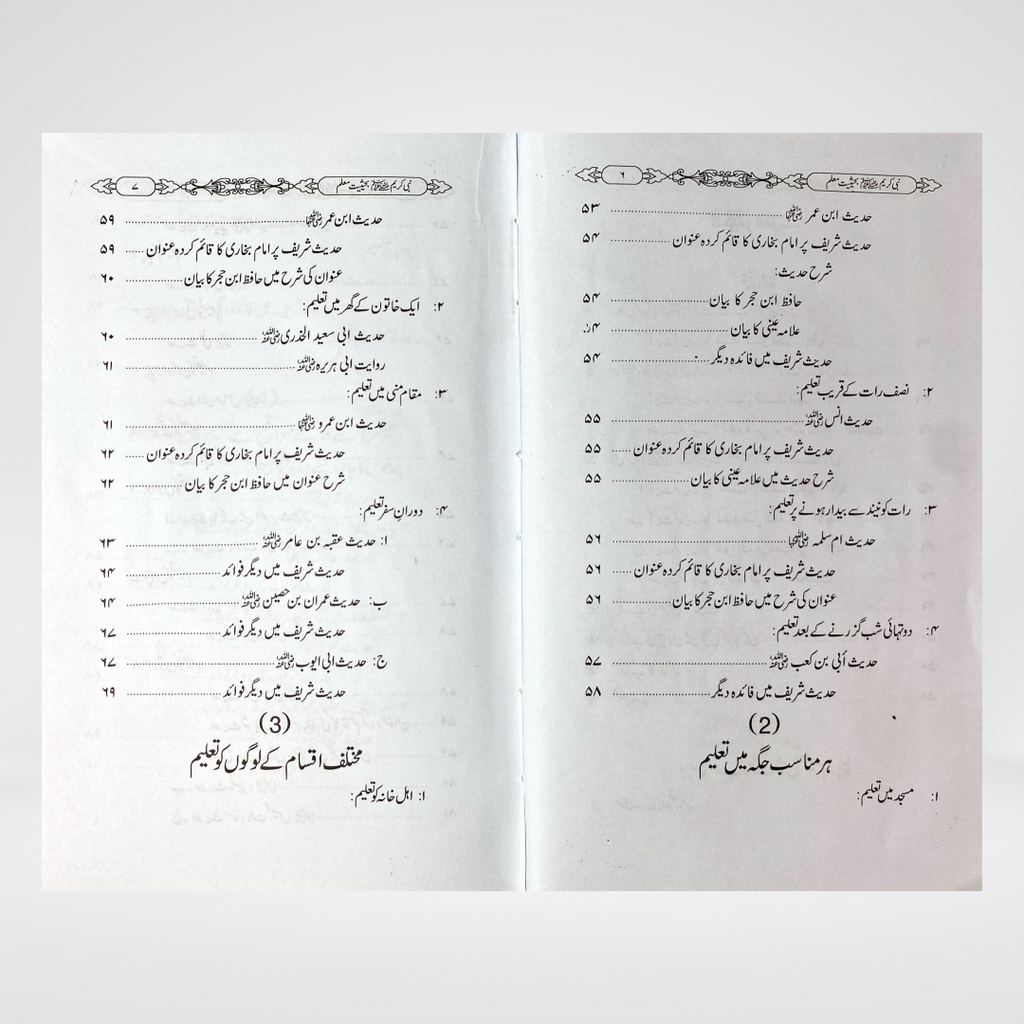 نبی کریم ﷺ بحیثیت معلم ۶
حدیث ابن عمر رضی اللہ عنہا ........................ ۵۳
حدیث شریف پر امام بخاری کا قائم کردہ عنوان ........ ۵۴
شرح حدیث:
حافظ ابن حجر کا بیان ........................ ۵۴
علامہ عینی کا بیان ........................ ۵۴
حدیث شریف میں فائدہ دیگر ........................ ۵۴
۲: نصف رات کے قریب تعلیم:
حدیث انس رضی اللہ عنہ ........................ ۵۵
حدیث شریف پر امام بخاری کا قائم کردہ عنوان ...... ۵۵
شرح حدیث میں علامہ عینی کا بیان ........................ ۵۵
۳: رات کو نیند سے بیدار ہونے پر تعلیم:
حدیث ام سلمہ رضی اللہ عنہا ........................ ۵۶
حدیث شریف پر امام بخاری کا قائم کردہ عنوان ...... ۵۶
عنوان کی شرح میں حافظ ابن حجر کا بیان ........................ ۵۶
۴: دو تہائی شب گزرنے کے بعد تعلیم:
حدیث أبی بن کعب رضی اللہ عنہ ........................ ۵۷
حدیث شریف میں فائدہ دیگر ........................ ۵۸
(2)
ہر مناسب جگہ میں تعلیم
۱: مسجد میں تعلیم:
نبی کریم ﷺ بحیثیت معلم ۷
حدیث ابن عمر رضی اللہ عنہا ........................ ۵۹
حدیث شریف پر امام بخاری کا قائم کردہ عنوان ...... ۵۹
عنوان کی شرح میں حافظ ابن حجر کا بیان ............ ۶۰
۲: ایک خاتون کے گھر میں تعلیم:
حدیث ابی سعید الخدری رضی اللہ عنہ ........................ ۶۰
روایت ابی ہریرہ رضی اللہ عنہ ........................ ۶۱
۳: مقام منی میں تعلیم:
حدیث ابن عمرو رضی اللہ عنہا ........................ ۶۱
حدیث شریف پر امام بخاری کا قائم کردہ عنوان ...... ۶۲
شرح عنوان میں حافظ ابن حجر کا بیان ............ ۶۲
۴: دورانِ سفر تعلیم:
ا: حدیث عقبہ بن عامر رضی اللہ عنہ ........................ ۶۳
حدیث شریف میں دیگر فوائد ........................ ۶۴
ب: حدیث عمران بن حصین رضی اللہ عنہ ........................ ۶۴
حدیث شریف میں دیگر فوائد ........................ ۶۷
ج: حدیث ابی ایوب رضی اللہ عنہ ........................ ۶۷
حدیث شریف میں دیگر فوائد ........................ ۶۹
(3)
مختلف اقسام کے لوگوں کو تعلیم
۱: اھل خانہ کو تعلیم: